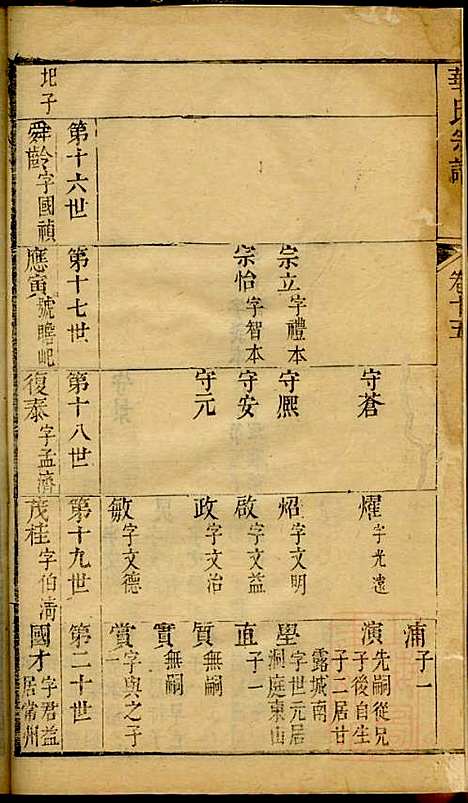 華氏宗譜
卷十五
浦 子一
守蒼
燿 字光遠
演 先嗣從兄子後自生子二居甘露城南
宗立 字禮本
守熙
炤 字文明
學 字世元居洞庭東山
宗怡 字智本
守安
啟 字文益
直 子一
守元
政 字文治
質 無嗣
實 無嗣
敏 字文德
賞 字與之子一
第十六世
第十七世
第十八世
第十九世
第二十世
圯子
舜齡 字國禎
應寅 號瞻屺
復泰 字孟濟
茂桂 字伯清
國才 字君益居常州